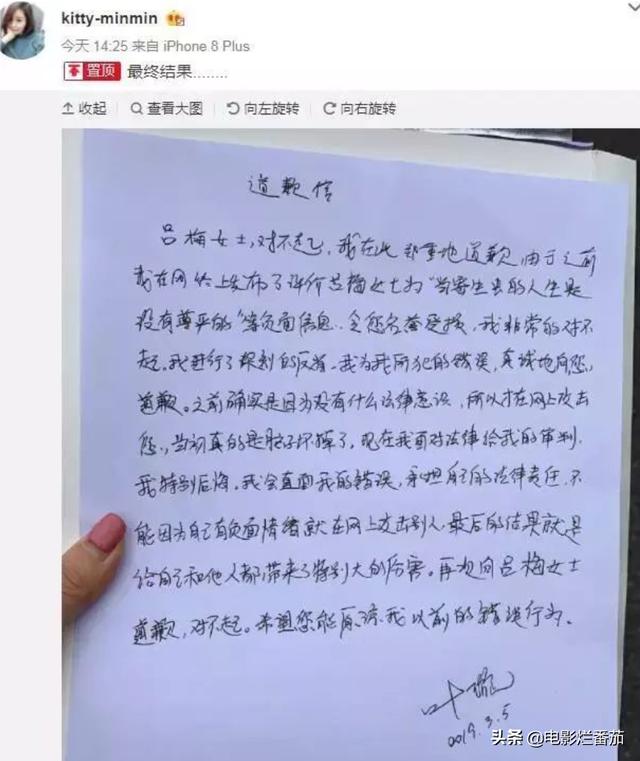 kitty-minmin
今天 14:25 来自 iPhone 8 Plus
置顶 最终结果........
收起 查看大图 向左旋转 向右旋转
道歉信
吕梅女士,对不起,我在此郑重地道歉,由于之前
我在网络上发布了评价吕梅女士为“当寄生虫的人生是
没有尊严的”等负面信息..令您名誉受损,我非常的对不
起.我进行了深刻的反省.我为我所犯的错误,真诚地向您,
道歉。之前确实是因为没有什么法律意识,所以才在网上攻击
您,当初真的是脑子坏掉了,现在我面对法律给我的审判.
我特别后悔.我会直面我的错误,承担自己的法律责任.不
能因为自己有负面情绪就在网上攻击别人,最后的结果就是
给自己和他人都带来了特别大的厉害。再次向吕梅女士
道歉,对不起。希望您能原谅我以前的错误行为.
叶璇
2019.3.5
头条 @电影烂番茄